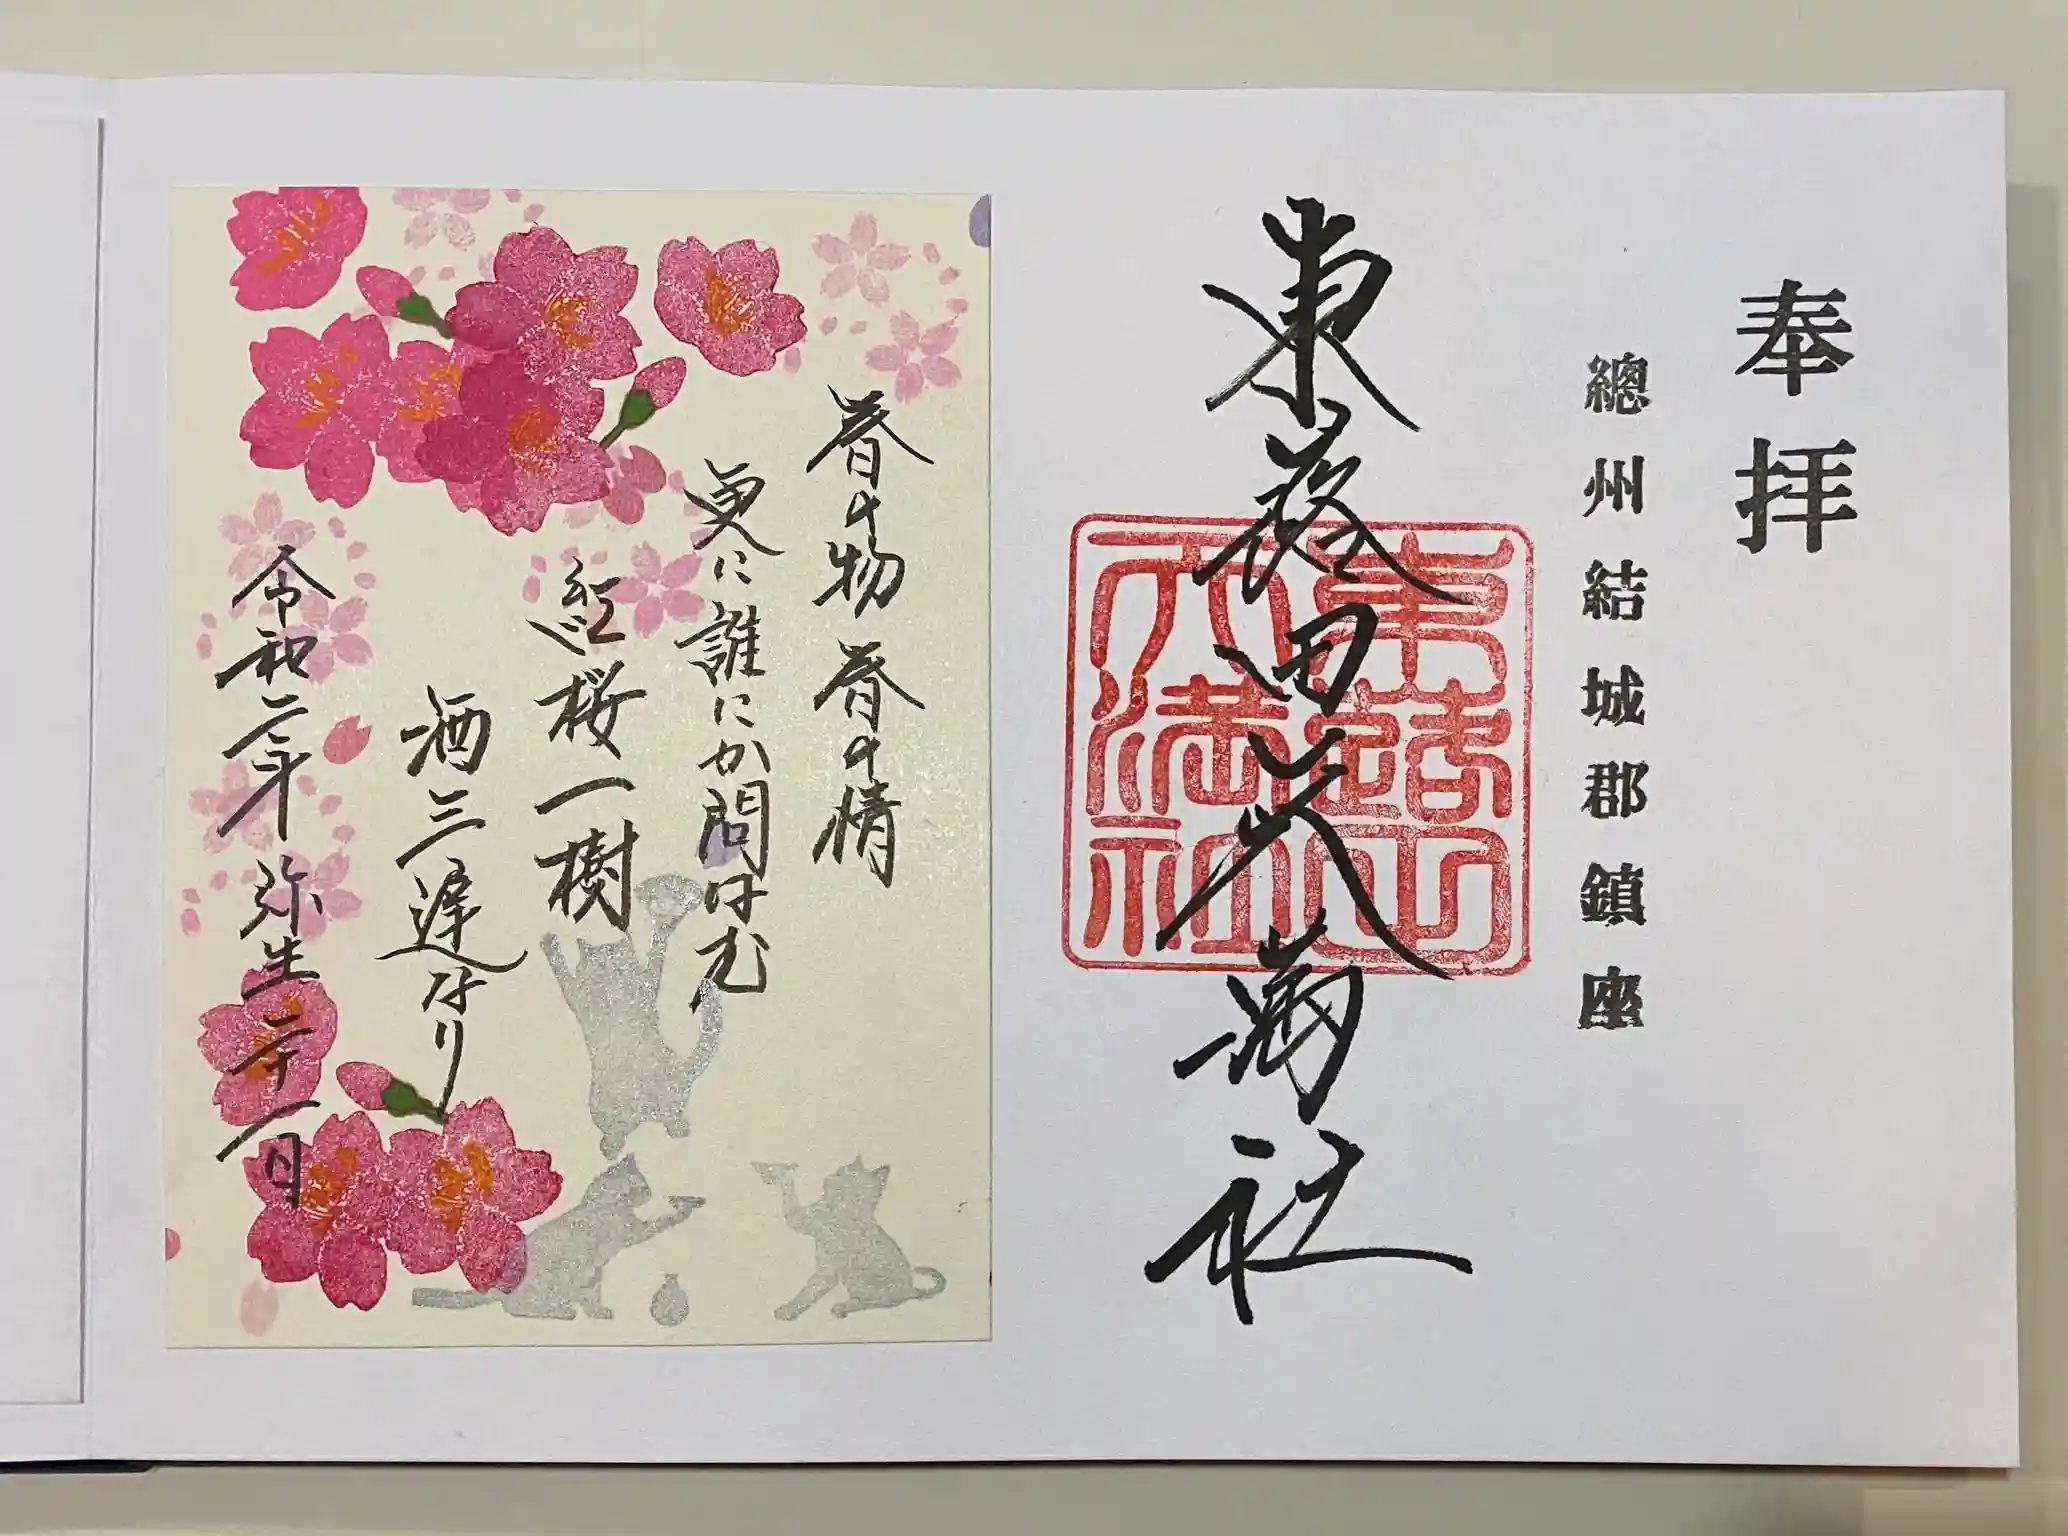 奉拝
總州結城郡鎮座
東蕗田天満社
春の物春の情
更に誰にか問はむ
紅桜一樹
酒三遅なり
令和二年弥生二十一日